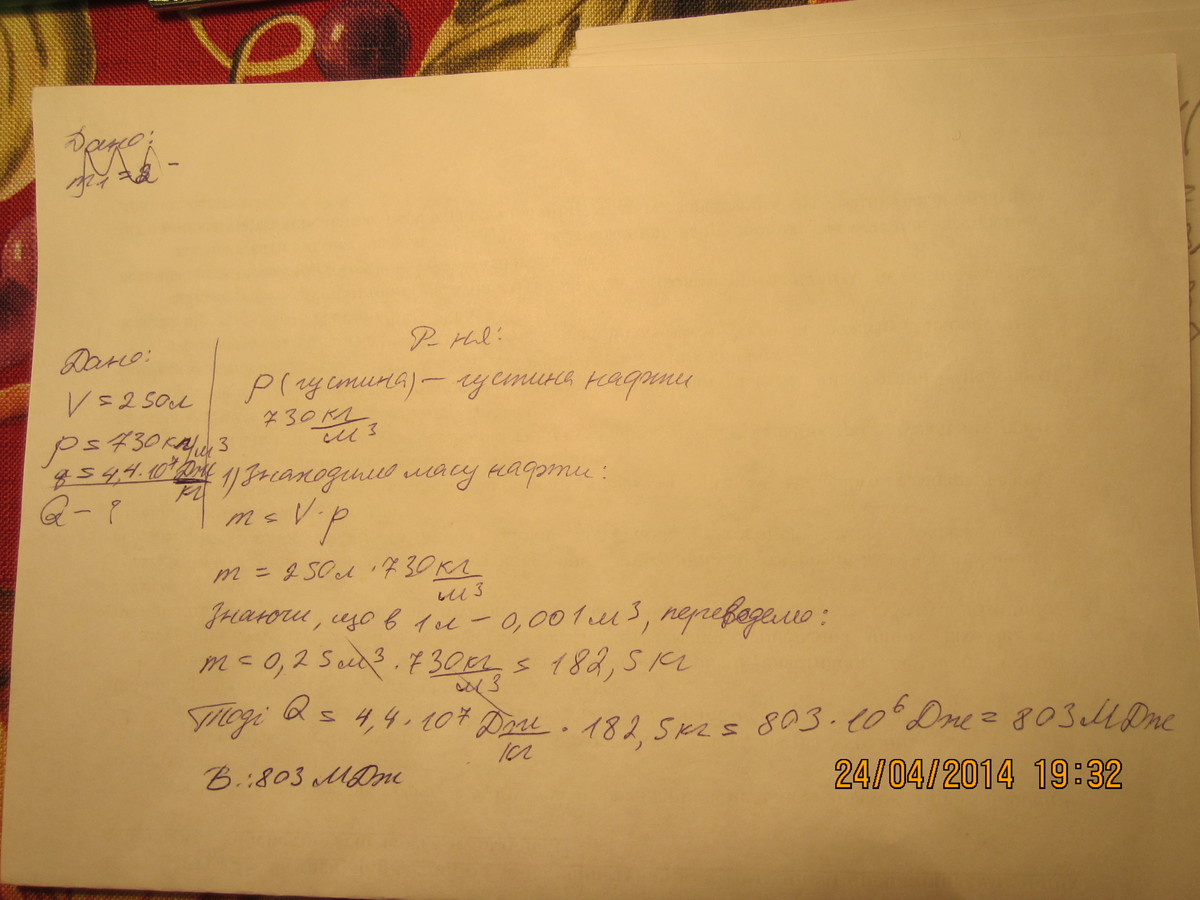 Дано:
m1 = 2 -
Дано:
V = 250л
ρ = 730 кг/м3
q = 4,4·10⁷ Дж/кг
Q - ?
Р-ня:
ρ (густина) – густина нафти
730 кг/м3
1) Знаходимо масу нафти:
m = V·ρ
m = 250л · 730 кг/м3
Знаючи, що в 1л – 0,001м3, переводемо:
m = 0,25м3 · 730 кг/м3 = 182,5 кг
Тоді Q = 4,4·10⁷ Дж/кг · 182,5кг = 803·10⁶ Дж = 803 МДж
В.: 803 МДж
24/04/2014 19:32